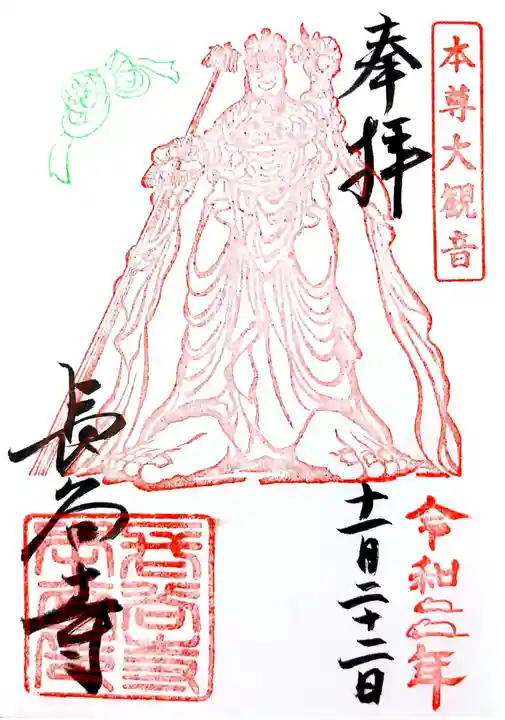 本尊大観音
令和二年
奉拝
十一月二十二日
長谷寺